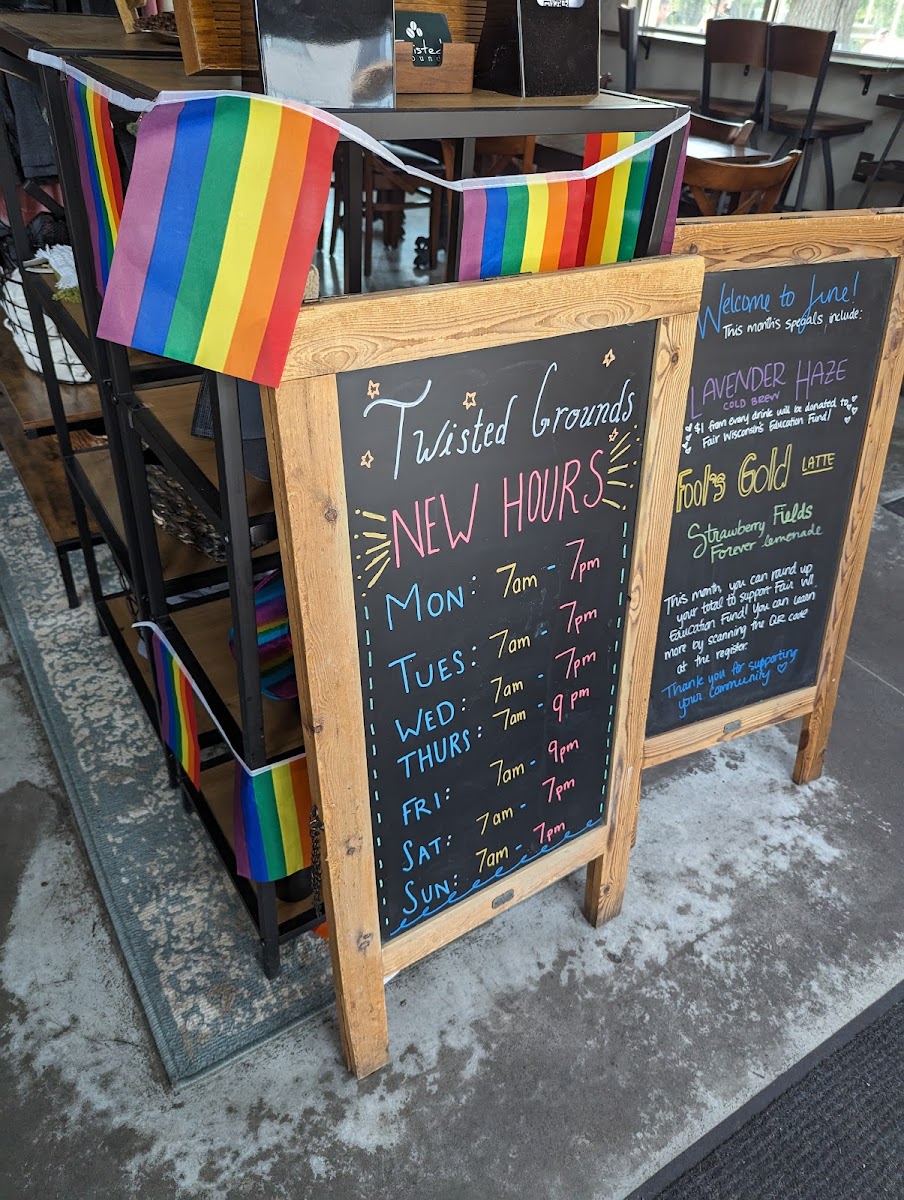 Twisted Grounds
NEW HOURS
MON: 7am - 7pm
TUES: 7am - 7pm
WED: 7am - 7pm
THURS: 7am - 9pm
FRI: 7am - 9pm
SAT: 7am - 7pm
SUN: 7am - 7pm
Welcome to June!
This month's specials include:
LAVENDER HAZE
COLD BREW
$1 from every drink will be donated to
Fair Wisconsin's Education Fund!
Fool's Gold LATTE
Strawberry Fields
Forever lemonade
This month, you can round up
your total to support Fair WI
Education Fund! You can learn
more by scanning the QR code
at the register.
Thank you for supporting
your community